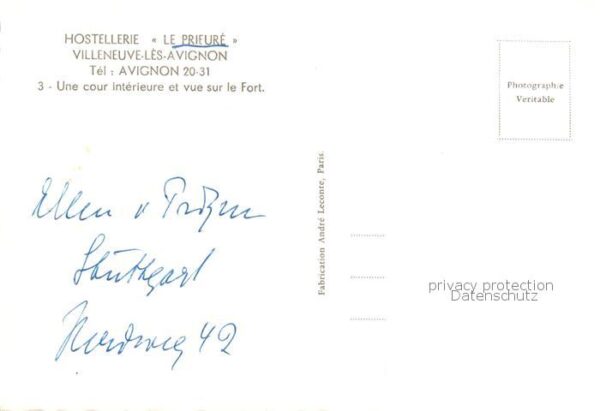 HOSTELLERIE « LE PRIEURÉ »
VILLENEUVE-LÈS-AVIGNON
Tél : AVIGNON 20-31
3 - Une cour intérieure et vue sur le Fort.
Photographie
Veritable
Fabrication André Leconte, Paris.
Ellen v
Stuttgart
42
privacy protection
Datenschutz